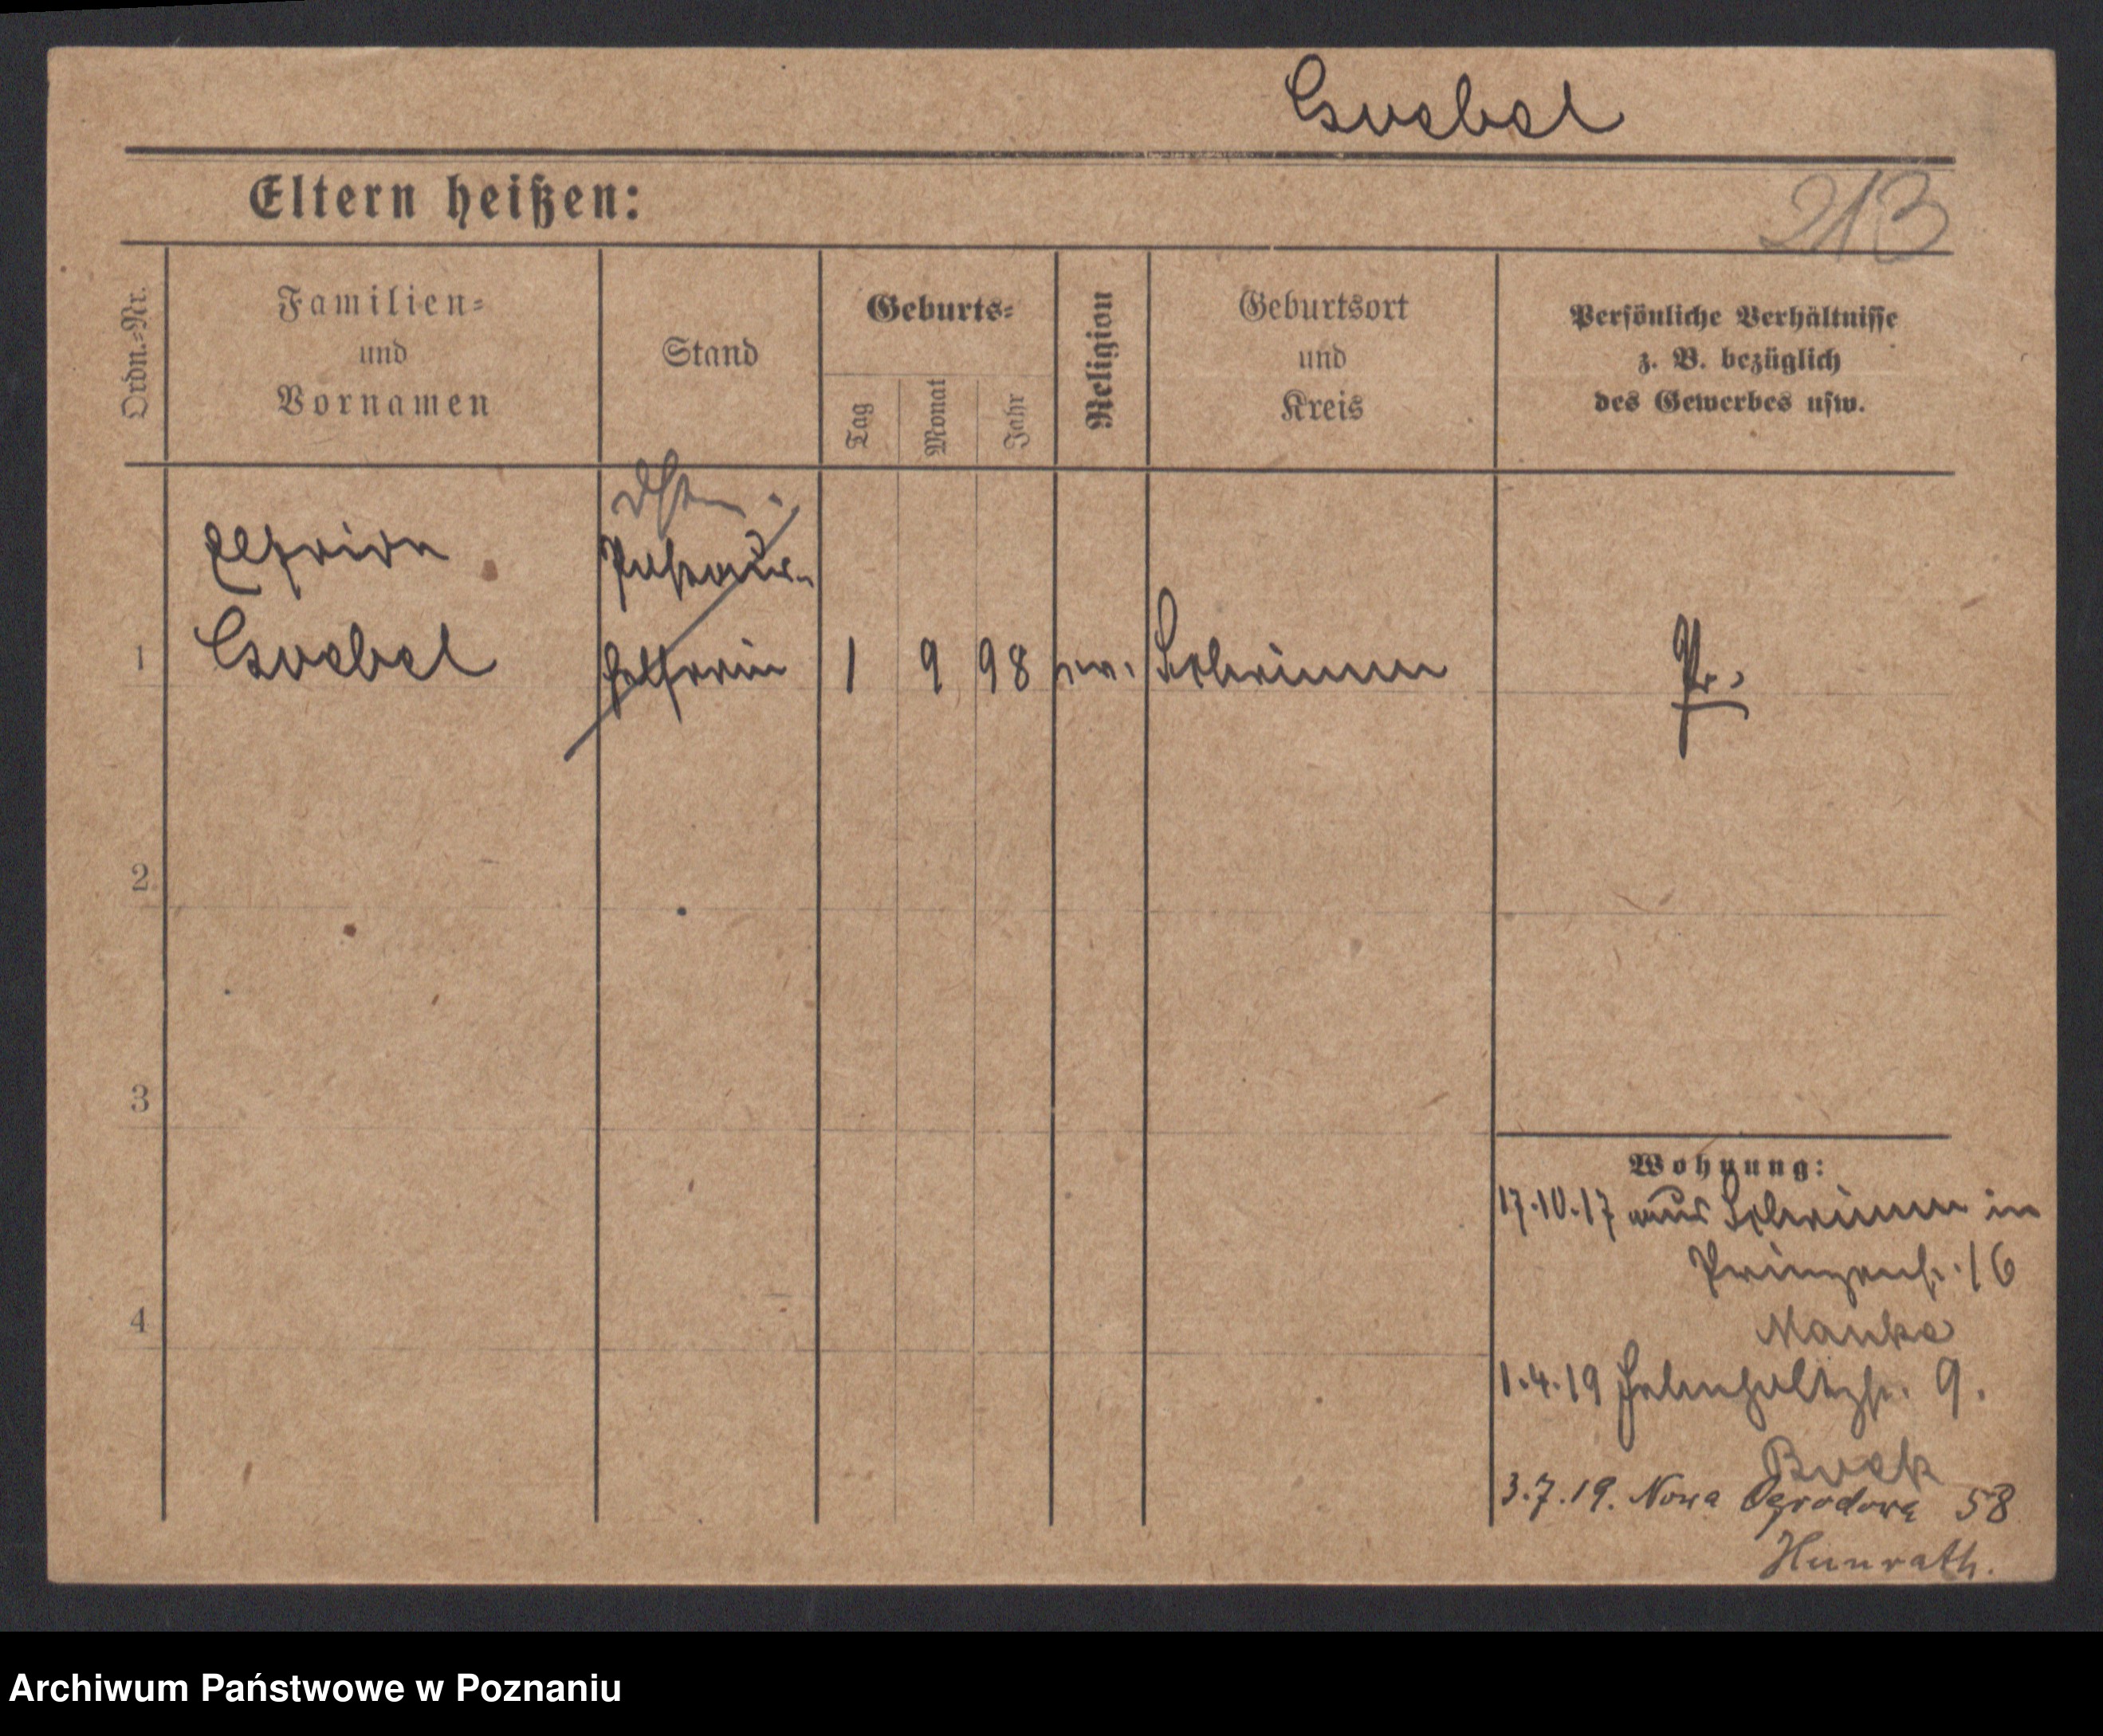 Goebel
Eltern heißen:
213
Ordn.-Nr.
Familien-
und
Vornamen
Stand
Geburts-
Tag
Monat
Jahr
Religion
Geburtsort
und
Kreis
Persönliche Verhältnisse
z. B. bezüglich
des Gewerbes usw.
1
Goebel
1 9 98 ev. Schrimm
Pr.
2
3
4
Wohnung:
17.10.17 aus Schrimm in
Prinzenstr. 16
Manke
1.4.19 Helmholtzstr. 9.
Buck
3.7.19. Nowa Ogrodowa 58
Hunrath.
Archiwum Państwowe w Poznaniu